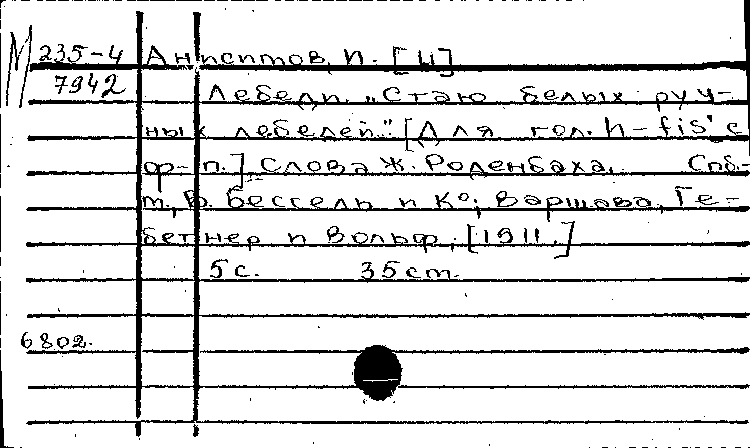 М 235-4 Анцептов, И. [Ц]
7942 Лебеди. "Стаю белых руч-
ных лебедей." [Для гол. h-fis' с
ф-п.] Слова Ж. Роденбаха. Спб.-
м., В. Бессель и К⁰; Варшава, Ге-
бетнер и Вольф, [1911.]
5 с. 35 cm.
6802.